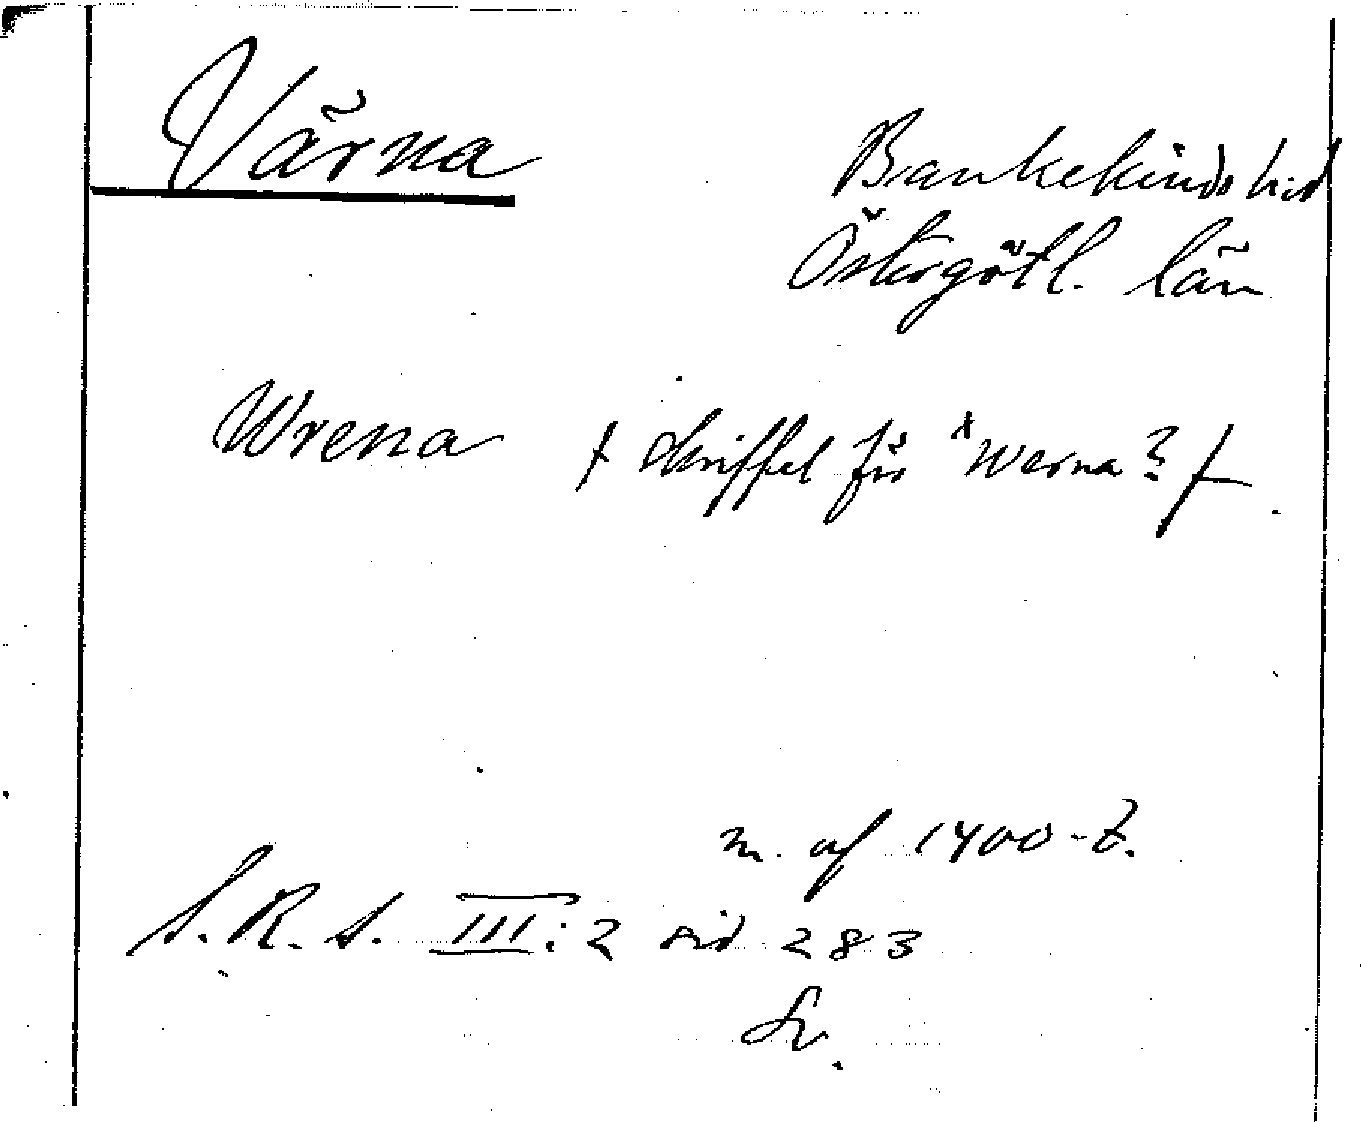 Värna
Bankekinds hd
Östergötl. län
Wrena / skriffel för *Werna? /
m. af 1400-t.
S. R. S. III:2 sid 283
Sv.